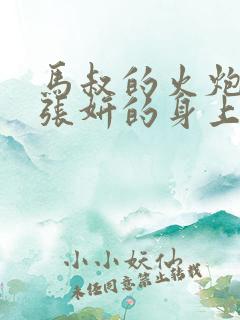 馬叔的火炮
張妍的身上
小小妖仙
未经同意禁止转载